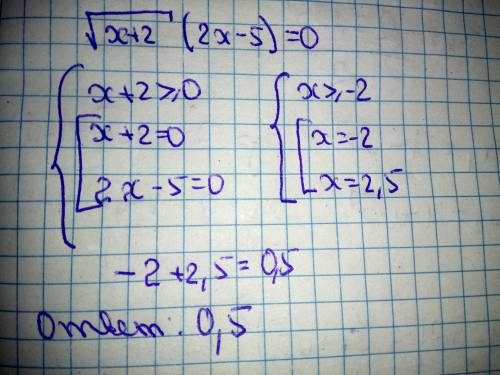 √(x+2) (2x-5)=0
{ x+2≥0 { x≥-2
[ x+2=0 [ x=-2
2x-5=0 x=2,5
-2+2,5=0,5
Ответ: 0,5